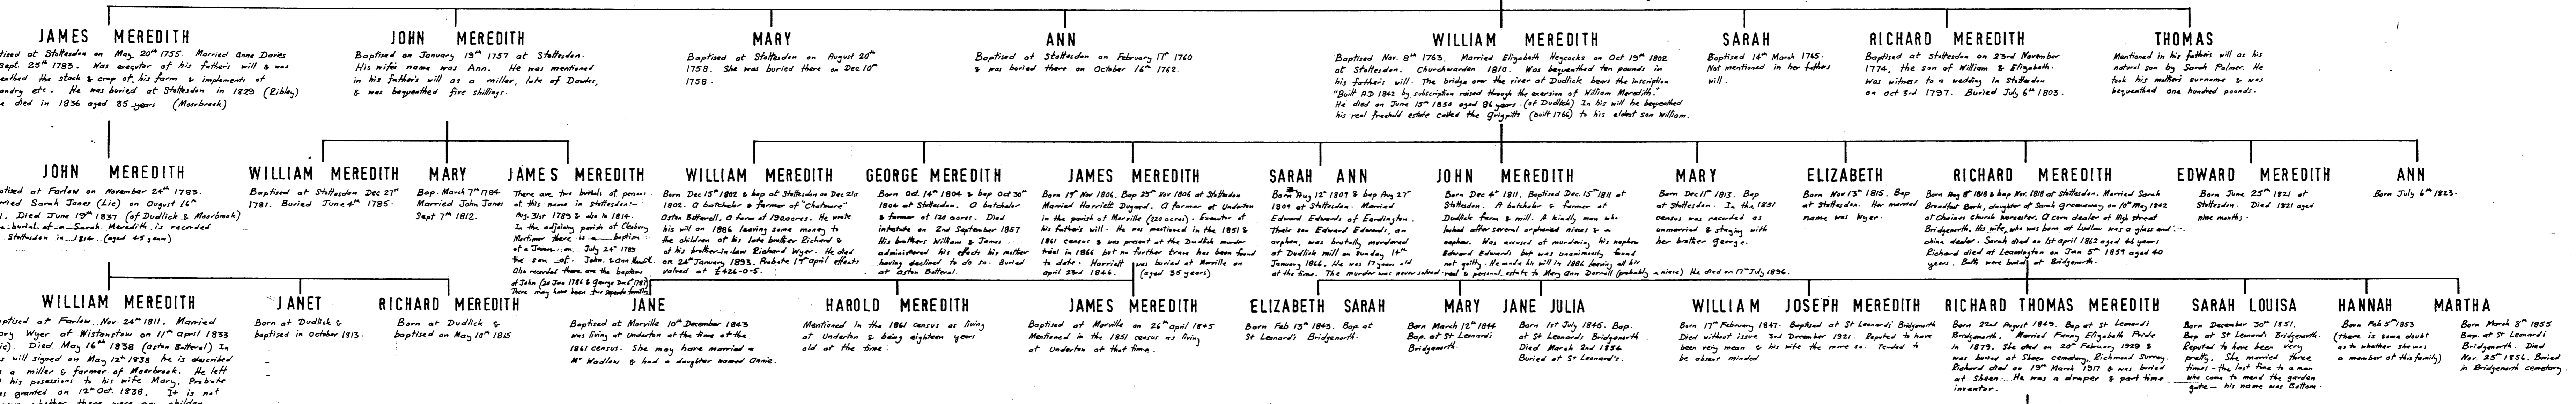 JAMES MEREDITH
tised at Stottesdon on May 20th 1755. Married Anne Davies
Sept. 25th 1783. Was executor of his father's will & was
eathed the stock & crop of his farm & implements of
andry etc. He was buried at Stottesdon in 1829 (Ribley)
e died in 1836 aged 85 years (Moorbrook)
JOHN MEREDITH
Baptised on January 19th 1757 at Stottesdon.
His wife's name was Ann. He was mentioned
in his father's will as a miller, late of Dowles,
& was bequeathed five shillings.
MARY
Baptised at Stottesdon on August 20th
1758. She was buried there on Dec 10th
1758.
ANN
Baptised at Stottesdon on February 17th 1760
& was buried there on October 16th 1762.
WILLIAM MEREDITH
Baptised Nov. 8th 1763. Married Elizabeth Heycocks on Oct 19th 1802
at Stottesdon. Churchwarden 1810. Was bequeathed ten pounds in
his father's will. The bridge over the river at Dudlick bears the inscription
"Built A.D 1842 by subscription raised through the exersion of William Meredith."
He died on June 15th 1850 aged 86 years. (of Dudlick) In his will he bequeathed
his real freehold estate called the Grigpitts (built 1766) to his eldest son William.
SARAH
Baptised 14th March 1765.
Not mentioned in her fathers
will.
RICHARD MEREDITH
Baptised at Stottesdon on 23rd November
1774, the son of William & Elizabeth.
Was witness to a wedding in Stottesdon
on Oct 3rd 1797. Buried July 6th 1803.
THOMAS
Mentioned in his father's will as his
natural son by Sarah Palmer. He
took his mother's surname & was
bequeathed one hundred pounds.
JOHN MEREDITH
tised at Farlow on November 24th 1783.
ried Sarah Jones (Lic) on August 16th
1. Died June 19th 1837 (of Dudlick & Moorbrook)
a burial of a Sarah Meredith is recorded
Stottesdon in 1814 (aged 45 years)
WILLIAM MEREDITH
Baptised at Stottesdon Dec 27th
1781. Buried June 4th 1785.
MARY
Bap. March 7th 1784
Married John Jones
Sept 7th 1812.
JAMES MEREDITH
There are two burials of persons
of this name in Stottesdon:-
Aug. 31st 1789 & also in 1814.
In the adjoining parish of Cleobury
Mortimer there is a baptism
of a James on July 24th 1789
the son of John & Ann
Also recorded there are the baptisms
of John (20 Jan 1786 & George Dec 6th 1787)
There may have been two separate families
WILLIAM MEREDITH
Born Dec 15th 1802 & bap at Stottesdon on Dec 21st
1802. A batchelor & farmer of "Chatmore"
Aston Botterell. A farm of 190 acres. He wrote
his will on 1886 leaving some money to
the children of his late brother Richard &
of his brother-in-law Richard Wyer. He died
on 24th January 1893. Probate 19th April effects
valued at £426-0-5.
GEORGE MEREDITH
Born Oct. 14th 1804 & bap Oct 30th
1804 at Stottesdon. A batchelor
& farmer of 120 acres. Died
intestate on 2nd September 1857
His brothers William & James
administered his effects his mother
having declined to do so. Buried
at Aston Botteral.
JAMES MEREDITH
Born 19th Nov 1806. Bap 25th Nov 1806 at Stottesdon
Married Harriett Dugard. A farmer of Underton
in the parish of Morville (220 acres). Executor of
his father's will. He was mentioned in the 1851 &
1861 census & was present at the Dudlick murder
trial in 1866 but no further trace has been found
to date. Harriett was buried at Morville on
April 23rd 1846. (aged 35 years)
SARAH ANN
Born Aug 12th 1809 & bap Aug 27th
1809 at Stottesdon. Married
Edward Edwards of Eardington.
Their son Edward Edwards, an
orphan, was brutally murdered
at Dudlick mill on Sunday 14th
January 1866. He was 17 years old
at the time. The murder was never solved.
JOHN MEREDITH
Born Dec 4th 1811. Baptised Dec. 15th 1811 at
Stottesdon. A batchelor & farmer of
Dudlick farm & mill. A kindly man who
looked after several orphaned nieces & a
nephew. Was accused of murdering his nephew
Edward Edwards but was unanimously found
not guilty. He made his will in 1886 leaving all his
real & personal estate to Mary Ann Dorrell (probably a niece) He died on 17th July 1896.
MARY
Born Dec 11th 1813. Bap
at Stottesdon. In the 1851
census was recorded as
unmarried & staying with
her brother George.
ELIZABETH
Born Nov 13th 1815. Bap
at Stottesdon. Her married
name was Wyer.
RICHARD MEREDITH
Born Aug 8th 1818 & bap Nov. 1818 at Stottesdon. Married Sarah
Broadfoot Bark, daughter of Sarah Greenaway on 10th May 1842
at Claines Church Worcester. A corn dealer of High Street
Bridgenorth. His wife, who was born at Ludlow was a glass and
china dealer. Sarah died on 1st April 1862 aged 46 years
Richard died at Leamington on Jan 5th 1859 aged 40
years. Both were buried at Bridgenorth.
EDWARD MEREDITH
Born June 25th 1821 at
Stottesdon. Died 1821 aged
nine months.
ANN
Born July 6th 1823.
WILLIAM MEREDITH
ptised at Farlow Nov. 24th 1811. Married
ary Wyer at Wistanstow on 11th April 1833
ic). Died May 16th 1838 (Aston Botteral) In
s will signed on May 12th 1838 he is described
s a miller & farmer of Moorbrook. He left
l his posessions to his wife Mary. Probate
as granted on 12th Oct. 1838. It is not
whether there were any children
JANET
Born at Dudlick &
baptised in October 1813.
RICHARD MEREDITH
Born at Dudlick &
baptised on May 10th 1815
JANE
Baptised at Morville 10th December 1843
was living at Underton at the time of the
1861 census. She may have married a
Mr Wadlow & had a daughter named Annie.
HAROLD MEREDITH
Mentioned in the 1861 census as living
at Underton & being eighteen years
old at the time.
JAMES MEREDITH
Baptised at Morville on 26th April 1845
Mentioned in the 1851 census as living
at Underton at that time.
ELIZABETH SARAH
Born Feb 13th 1843. Bap at
St Leonards Bridgenorth.
MARY JANE
Born March 12th 1844
Bap. at St Leonards
Bridgenorth.
JULIA
Born 1st July 1845. Bap.
at St Leonards Bridgenorth
Died March 2nd 1854
Buried at St Leonard's.
WILLIAM JOSEPH MEREDITH
Born 17th February 1847. Baptised at St Leonards Bridgenorth
Died without issue 3rd December 1921. Reputed to have
been very mean & his wife the more so. Tended to
be absent minded
RICHARD THOMAS MEREDITH
Born 22nd August 1849. Bap at St Leonards
Bridgenorth. Married Fanny Elizabeth Purdie
in 1879. She died on 20th February 1929 &
was buried at Sheen cemetery, Richmond Surrey.
Richard died on 19th March 1917 & was buried
at Sheen. He was a draper & part time
inventor.
SARAH LOUISA
Born December 30th 1851.
Bap at St Leonards Bridgenorth.
Reputed to have been very
pretty. She married three
times - the last time to a man
who came to mend the garden
gate - his name was Bottom.
HANNAH
Born Feb 5th 1853
(there is some doubt
as to whether she was
a member of this family)
MARTHA
Born March 8th 1855
Bap. at St Leonards
Bridgenorth. Died
Nov. 25th 1856. Buried
in Bridgenorth cemetery.